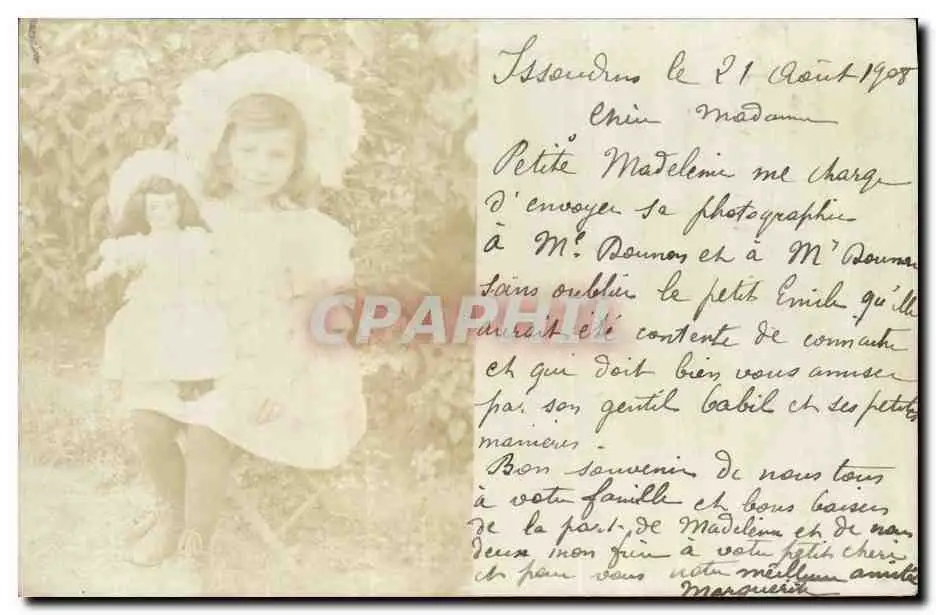 Issoudun le 21 Août 1908
Chère Madame
Petite Madeleine me charge
d'envoyer sa photographie
à Me. Bounon et à Mr Bounon
sans oublier le petit Emile qu'elle
aurait été contente de connaitre
et qui doit bien vous amuser
par son gentil babil et ses petites
manières.
Bon souvenir de nous tous
à votre famille et bons baisers
de la part de Madeleine et de nous
deux mon frère à votre petit cheri
et pour vous notre meilleure amitié
Marguerite
CPAPHIL